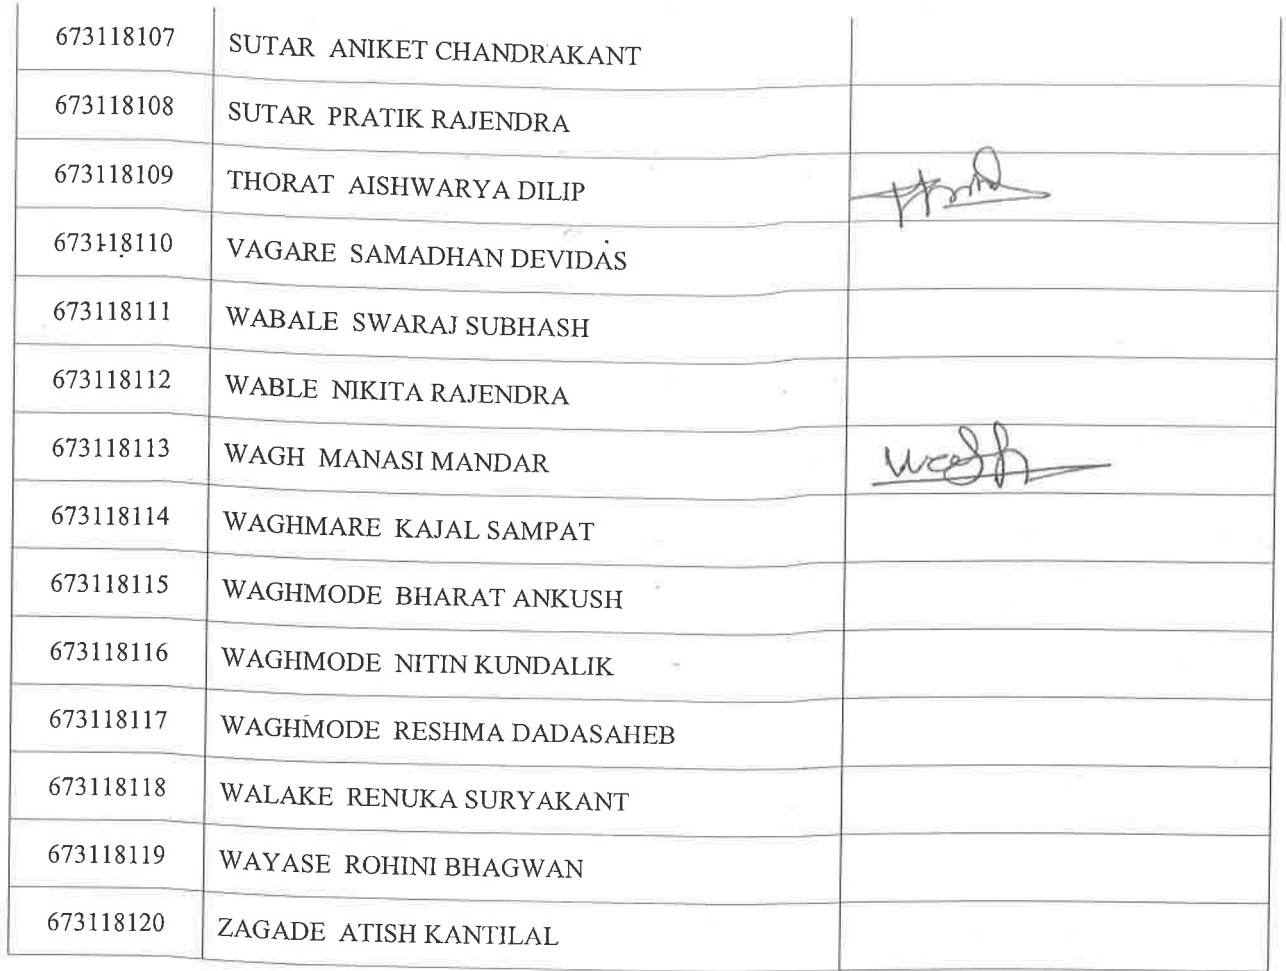 673118107 SUTAR ANIKET CHANDRAKANT
673118108 SUTAR PRATIK RAJENDRA
673118109 THORAT AISHWARYA DILIP
673118110 VAGARE SAMADHAN DEVIDAS
673118111 WABALE SWARAJ SUBHASH
673118112 WABLE NIKITA RAJENDRA
673118113 WAGH MANASI MANDAR
673118114 WAGHMARE KAJAL SAMPAT
673118115 WAGHMODE BHARAT ANKUSH
673118116 WAGHMODE NITIN KUNDALIK
673118117 WAGHMODE RESHMA DADASAHEB
673118118 WALAKE RENUKA SURYAKANT
673118119 WAYASE ROHINI BHAGWAN
673118120 ZAGADE ATISH KANTILAL